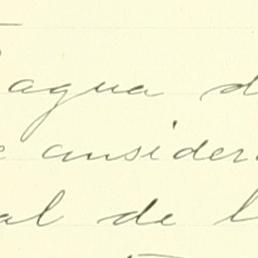 agua d
e consider
al de l